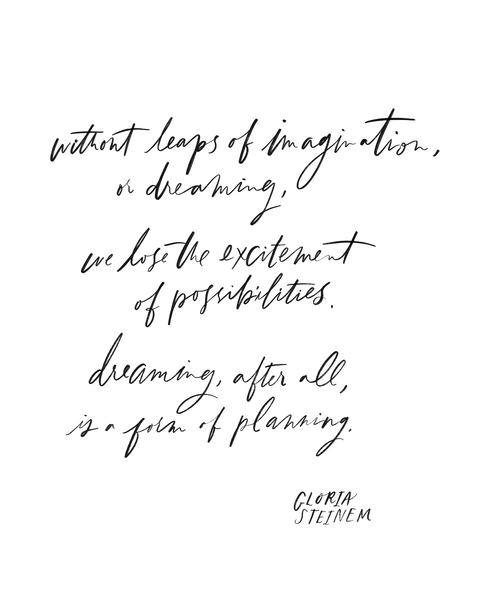 without leaps of imagination,
or dreaming,
we lose the excitement
of possibilities.
dreaming, after all,
is a form of planning.
GLORIA
STEINEM